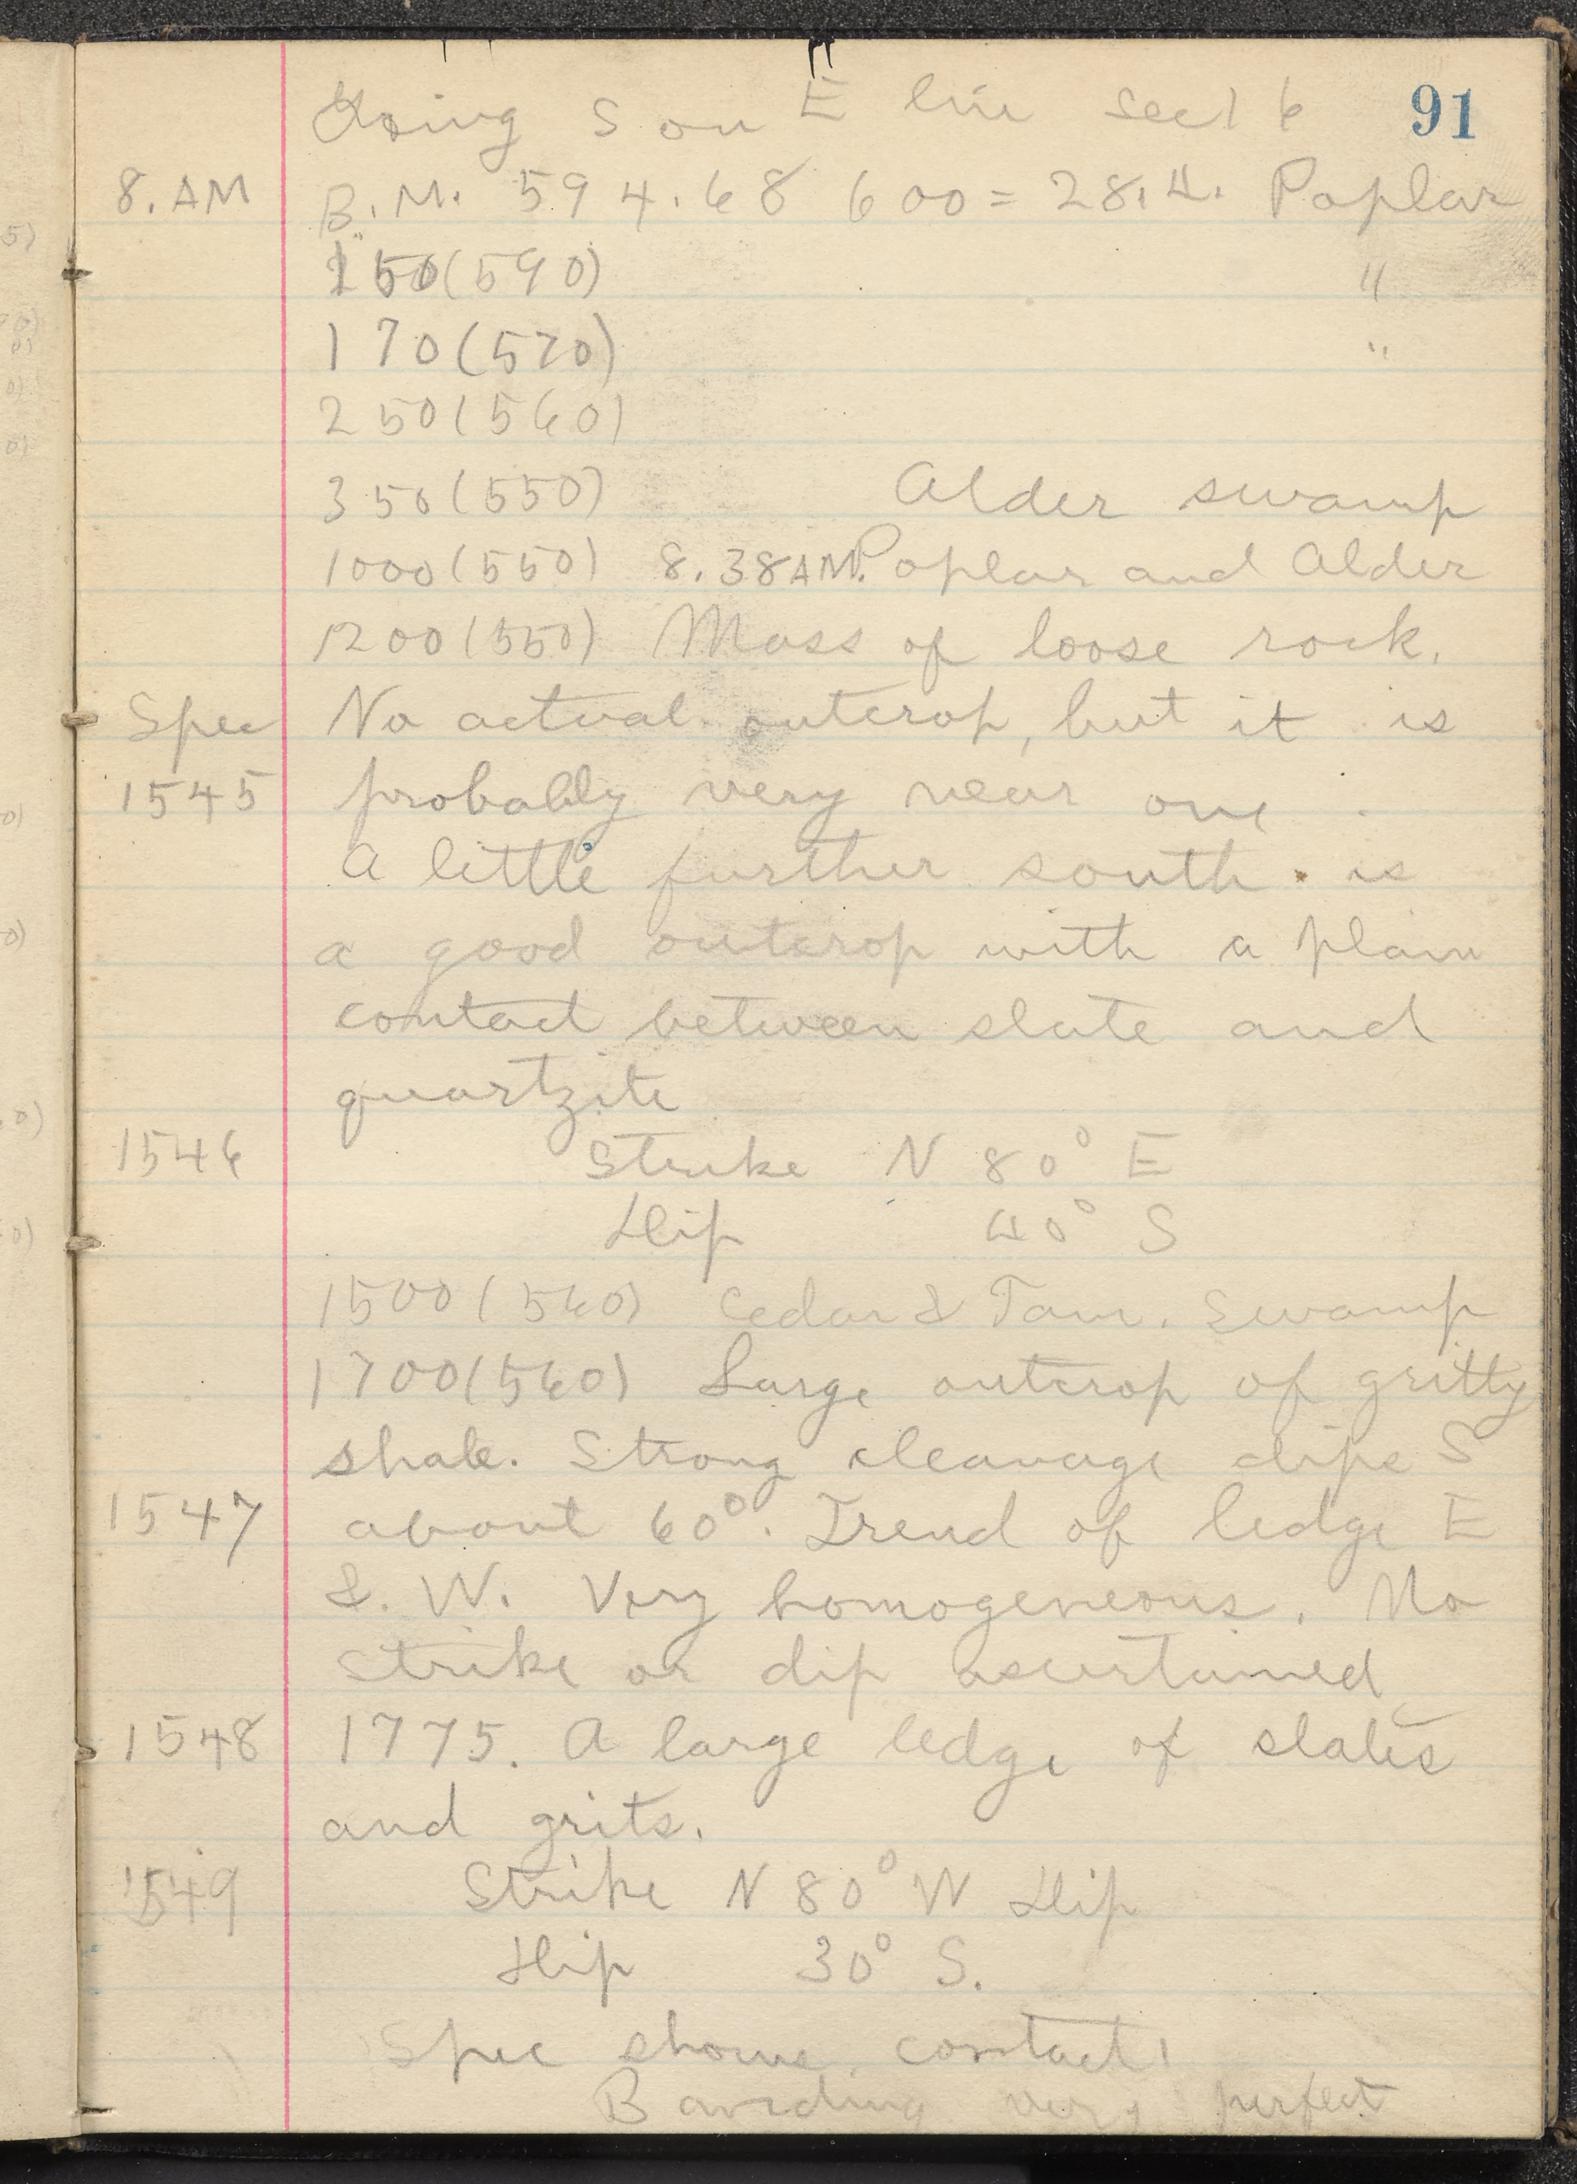 91
Going S on E line Sect 6
8. AM B.M. 594.68 600 = 28.4. Poplar
150(590) "
170(570) "
250(560)
350(550) Alder swamp
1000(550) 8.38 AM. Poplar and Alder
1200(550) Mass of loose rock.
Spec No actual outcrop, but it is
1545 probably very near one.
A little further south is
a good outcrop with a plain
contact between slate and
quartzite
1546 Strike N 80° E
Dip 40° S
1500(560) Cedar & Tam. Swamp
1700(560) Large outcrop of gritty
shale. Strong cleavage dips S
1547 about 60°. Trend of ledge E
&. W. Very homogeneous. No
strike or dip ascertained
1548 1775. A large ledge of slates
and grits.
1549 Strike N 80° W Dip
Dip 30° S.
Spec shows contact
Banding very perfect